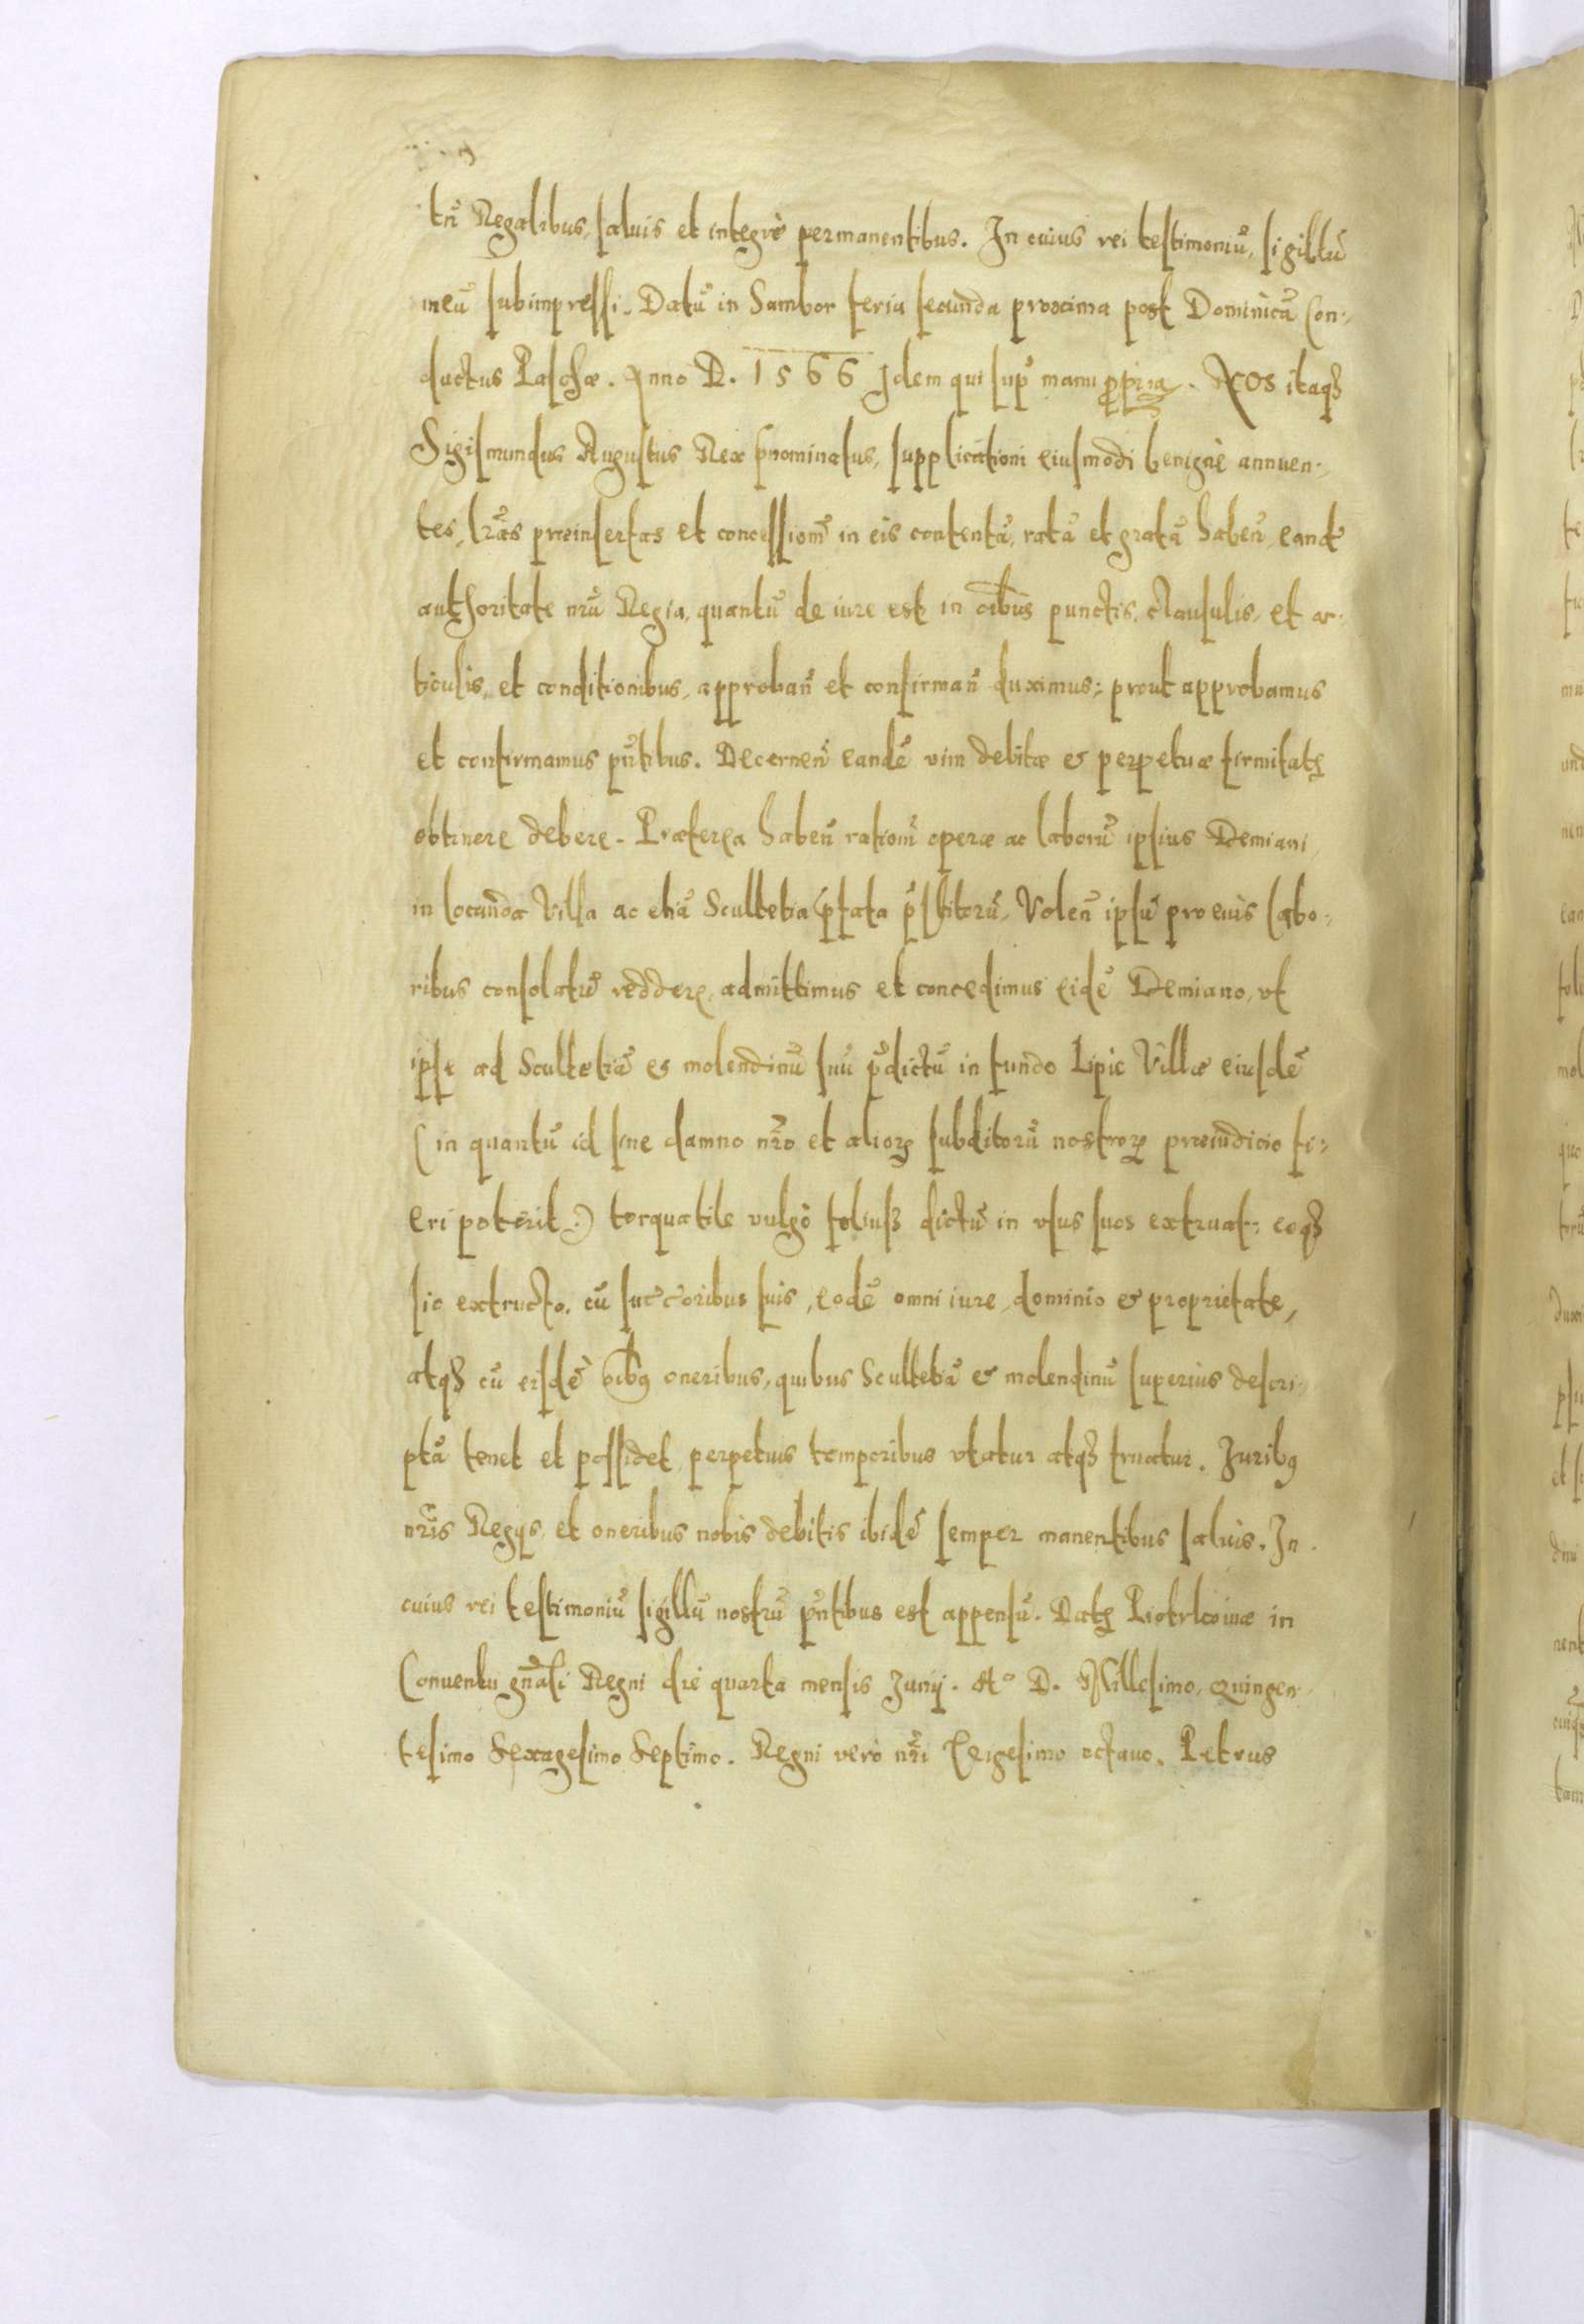 tñ Regalibus, saluis et integrè permanentibus. In cuius rei testimoniũ, sigillũ
meũ subimpressi. Datũ in Sambor feria secunda proxima post Dominicã Con-
ductus Paschæ. Anno D. 1566 Idem qui sup̃ manu ppria. Nos itaq3
Sigismundus Augustus Rex pnominatus, supplicationi eiusmodi benignè annuen-
tes, lr̃as præinsertas et concessionẽ in eis contentã, ratã et gratã habeñ, eandẽ
authoritate nrã Regia, quantũ de iure est in oĩbus punctis, clausulis, et ar-
ticulis, et conditionibus, approbañ et confirmañ duximus; prout approbamus
et confirmamus pñtibus. Decerneñ eandẽ vim debitæ & perpetuæ firmitatꝭ
obtinere debere. Præterea habeñ rationẽ operæ ac laborũ ipsius Demiani
in locanda Villa ac etiã Scultetia pfata p̃stitorũ, Voleñ ipsũ pro euis labo-
ribus consolatũ reddere, admittimus et concedimus eidẽ Demiano, vt
ipse ad Scultetiã & molendinũ suũ p̃dictũ in fundo Lipie Villæ eiusdẽ
(in quantũ id sine damno nr̃o et alioꝝ subditorũ nostroꝝ præiudicio fi-
eri poterit) torquatile vulgò foliusz dictũ in vsus suos extruat; eoq3
sic extructo, cũ succ̃oribus suis, eodẽ omni iure, dominio & proprietate,
atq3 cũ eisdẽ oĩbꝰ oneribus, quibus Scultetiã & molendinũ superius descri-
ptã tenet et possidet, perpetuis temporibus vtatur atq3 fruatur. Juribꝰ
nr̃is Regijs, et oneribus nobis debitis ibidẽ semper manentibus saluis. In
cuius rei testimoniũ sigillũ nostrũ pñtibus est appensũ. Datꝭ Piotrkouiæ in
Conuentu gñali Regni die quarta mensis Junij. Aº D. Millesimo, Quingen-
tesimo Sexagesimo Septimo. Regni verò nr̃i Trigesimo octauo. Petrus